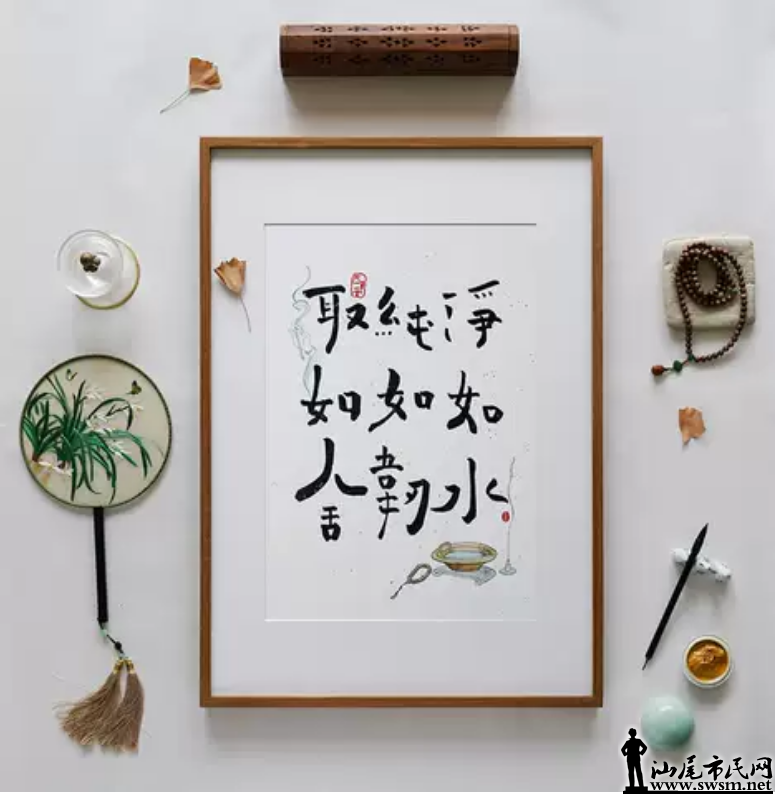 淨如水
純如韌
取如舍
汕尾市民网
www.swsm.net